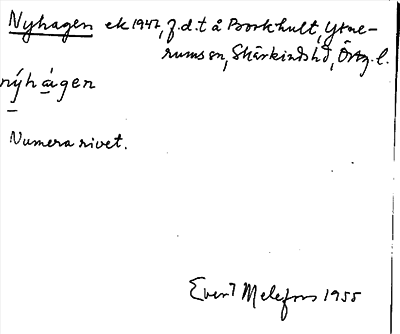 Nyhagen ek 1947, f.d.t å Borkhult, Yxne-
rums sn, Skärkinds hd, Östg. l.
nýhágen
Numera rivet.
Evert Melefors 1955